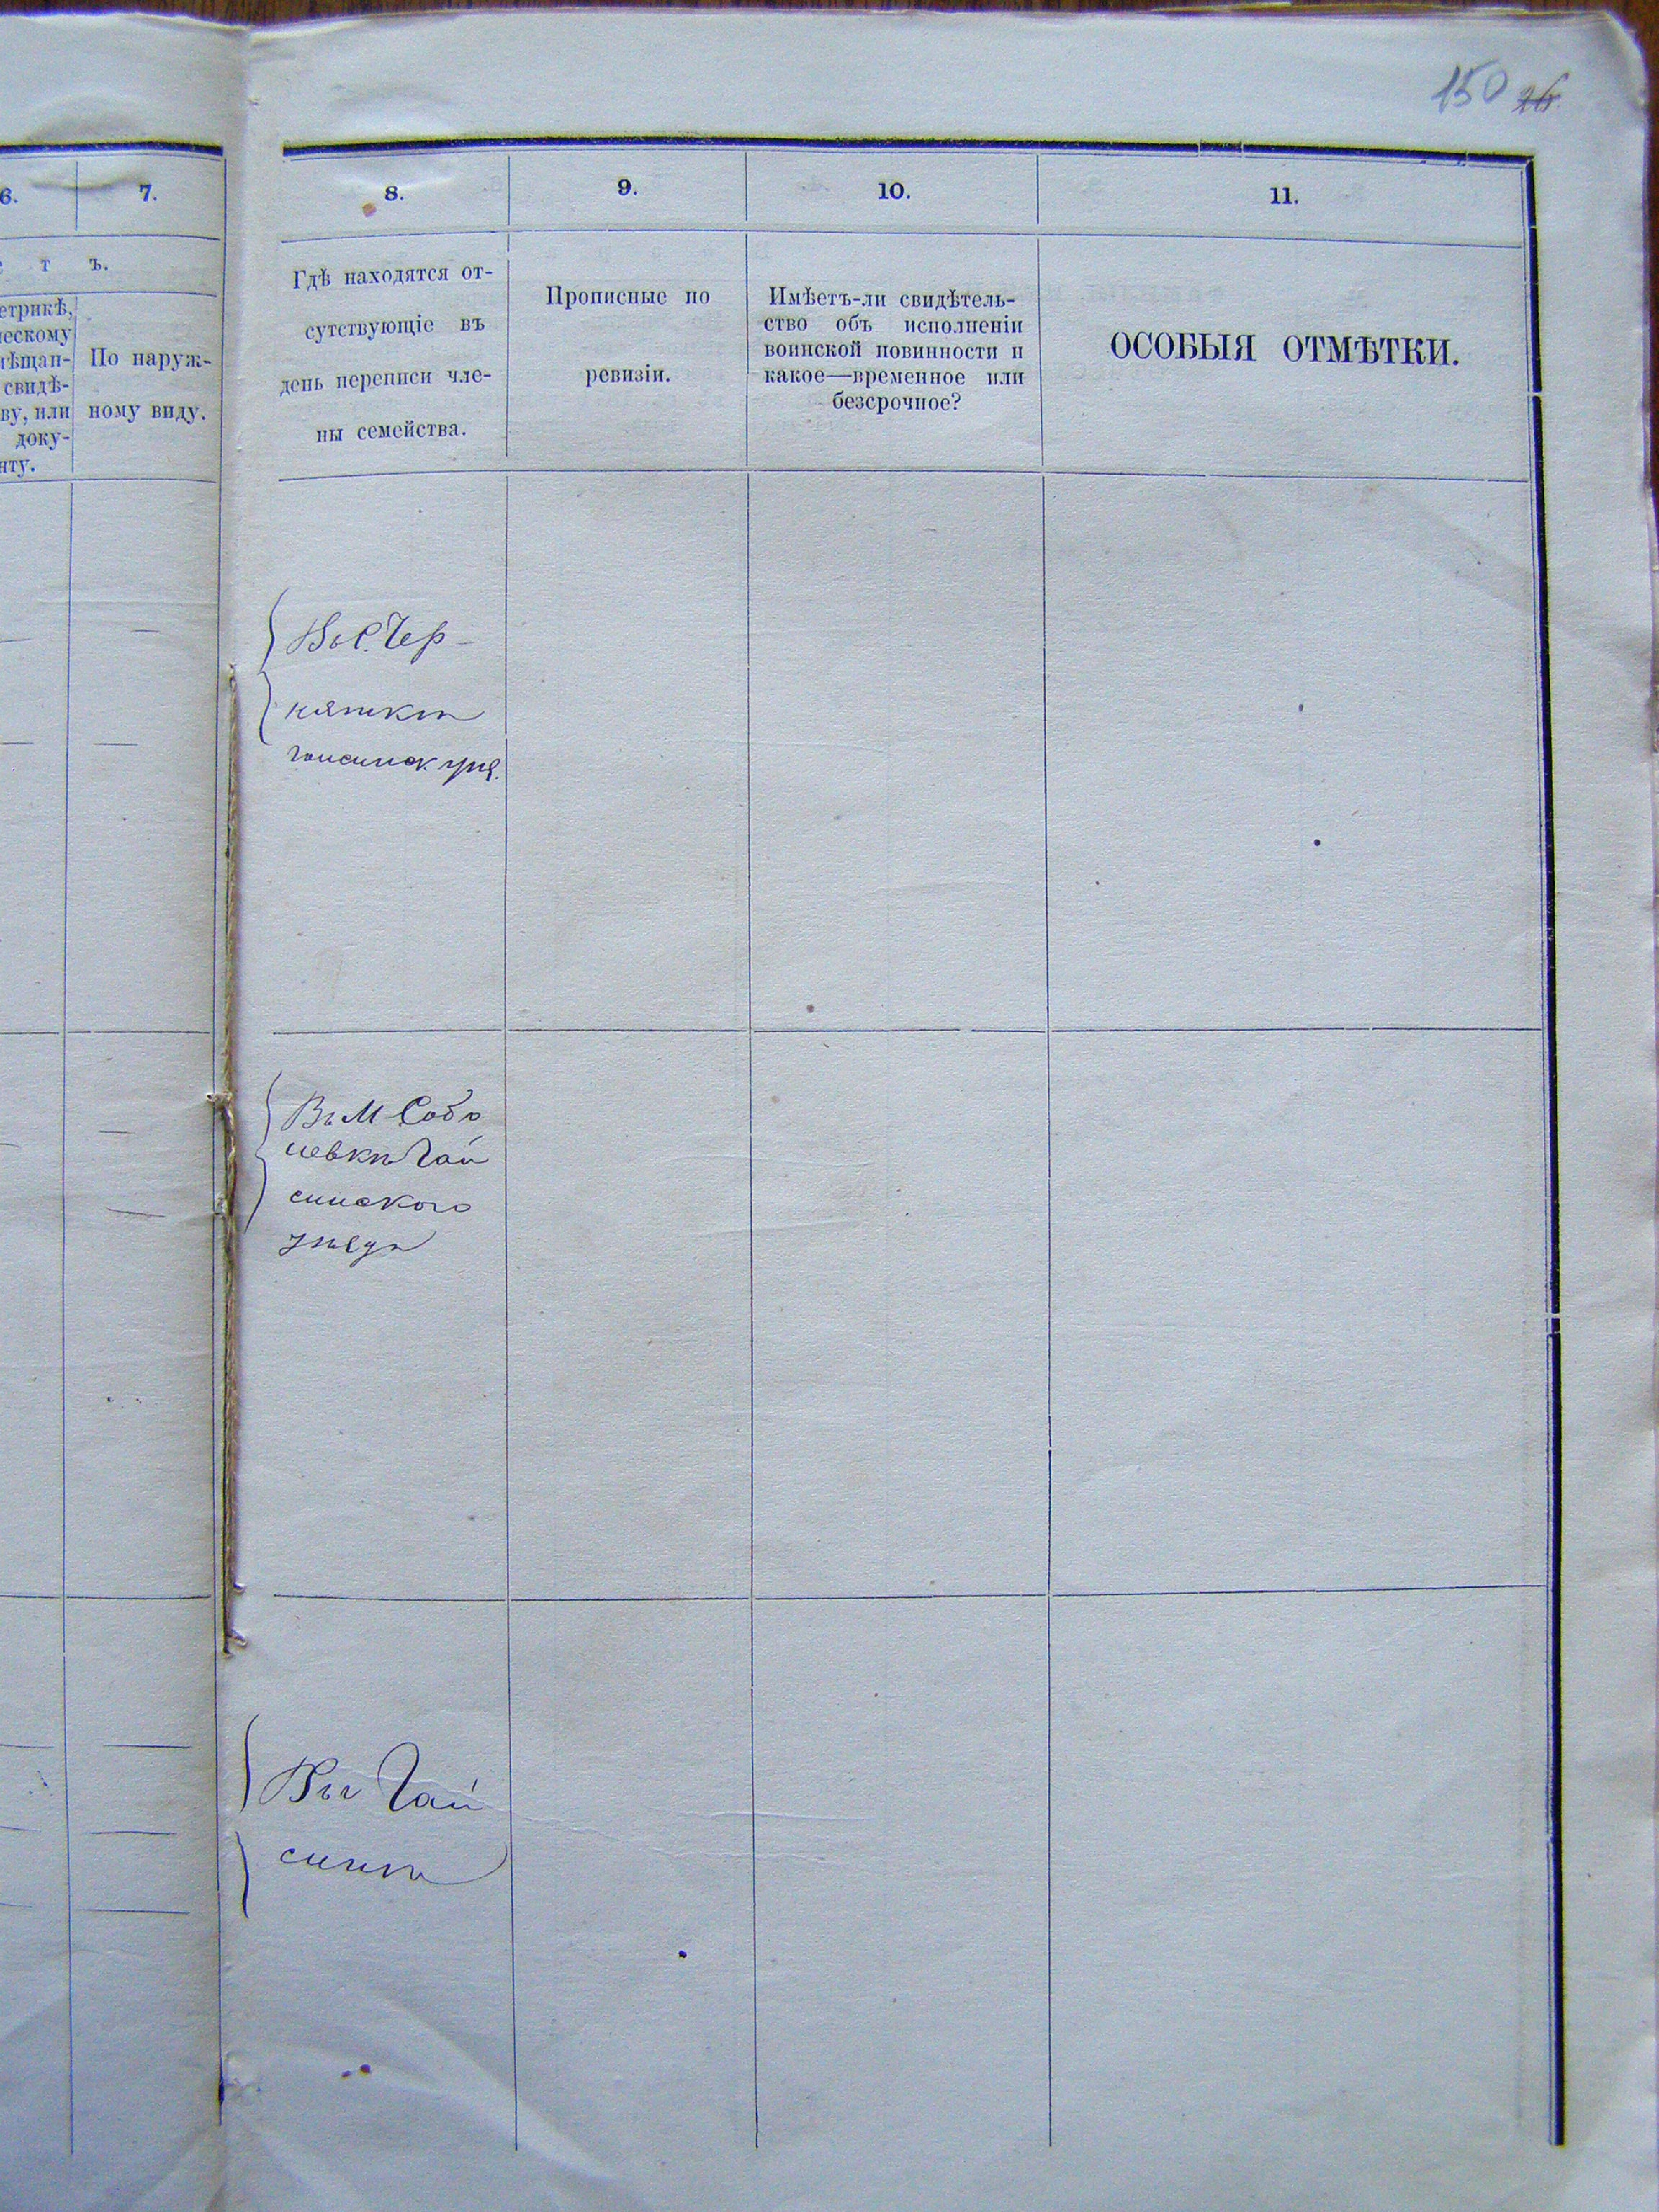 150 26
6.
7.
тъ.
етрикѣ,
ческому
мѣщан-
свидѣ-
ву, или
доку-
нту.
По наруж-
ному виду.
8.
9.
10.
11.
Гдѣ находятся от-
сутствующіе въ
день переписи чле-
ны семейства.
Прописные по
ревизіи.
Имѣетъ-ли свидѣтель-
ство объ исполненіи
воинской повинности и
какое—временное или
безсрочное?
ОСОБЫЯ ОТМѢТКИ.
Въ С. Чер-
няткѣ
Въ М Собо
левкѣ Гай
синского
уѣзда
Въ Гай
синѣ